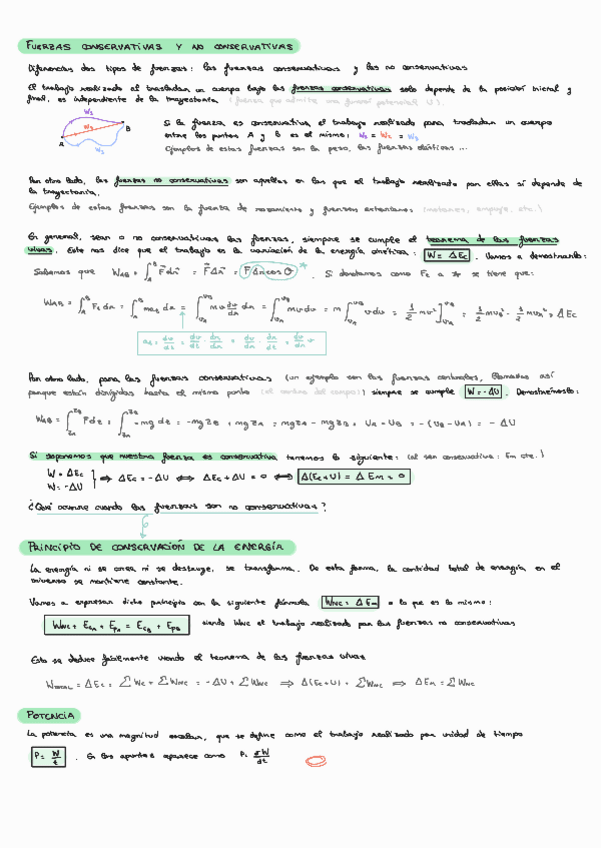 FUERZAS CONSERVATIVAS Y NO CONSERVATIVAS
Diferencias dos tipos de fuerzas: las fuerzas conservativas y las no conservativas
El trabajo realizado al trasladar un cuerpo bajo las fuerzas conservativas solo depende de la posición inicial y
final, es independiente de la trayectoria (fuerza que admite una función potencial U).
W₁
W₂
W₃
A
B
Si la fuerza es conservativa, el trabajo realizado para trasladar un cuerpo
entre los puntos A y B es el mismo: W₁ = W₂ = W₃
Ejemplos de estas fuerzas son la peso, las fuerzas elásticas ...
Por otro lado, las fuerzas no conservativas son aquellas en las que el trabajo realizado por ellas sí depende de
la trayectoria.
Ejemplos de estas fuerzas son la fuerza de rozamiento y fuerzas exteriores (motores, empuje, etc.)
En general, sean o no conservativas las fuerzas, siempre se cumple el teorema de las fuerzas
vivas. Este nos dice que el trabajo es la variación de la energía cinética: W = ΔEc. Vamos a demostrarlo:
Sabemos que W_AB = ∫_A^B F⃗ dr⃗ = F⃗ Δr⃗ = F Δr cos θ *. Si denotamos como Ft a * se tiene que:
W_AB = ∫_A^B Ft dr = ∫_A^B m at dr = ∫_vA^vB m v dv/dr dr = ∫_vA^vB m v dv = m ∫_vA^vB v dv = 1/2 m v² ]_vA^vB = 1/2 m vB² - 1/2 m vA² = ΔEc
at = dv/dt = dv/dt · dr/dr = dv/dr · dr/dt = dv/dr v
Por otro lado, para las fuerzas conservativas (un ejemplo son las fuerzas centrales, llamadas así
porque están dirigidas hasta el mismo punto (el centro del campo)) siempre se cumple W = -ΔU. Demostrémoslo:
W_AB = ∫_zA^zB F dz = ∫_zA^zB -mg dz = -mg zB + mg zA = mg zA - mg zB = UA - UB = -(UB - UA) = -ΔU
Si suponemos que nuestra fuerza es conservativa tenemos lo siguiente: (al ser conservativa: Em cte.)
W = ΔEc
W = -ΔU
⇒ ΔEc = -ΔU ⇔ ΔEc + ΔU = 0 ⇔ Δ(Ec + U) = ΔEm = 0
¿Qué ocurre cuando las fuerzas son no conservativas?
PRINCIPIO DE CONSERVACIÓN DE LA ENERGÍA
La energía ni se crea ni se destruye, se transforma. De esta forma, la cantidad total de energía en el
universo se mantiene constante.
Vamos a expresar dicho principio con la siguiente fórmula Wnc = ΔEm o lo que es lo mismo:
Wnc + EcA + EpA = EcB + EpB siendo Wnc el trabajo realizado por las fuerzas no conservativas
Esto se deduce fácilmente viendo el teorema de las fuerzas vivas
W_TOTAL = ΔEc = ΣWc + ΣWnc = -ΔU + ΣWnc ⇒ Δ(Ec + U) = ΣWnc ⇔ ΔEm = ΣWnc
POTENCIA
La potencia es una magnitud escalar, que se define como el trabajo realizado por unidad de tiempo
P = W/t. En los apuntes aparece como P = δW/dt